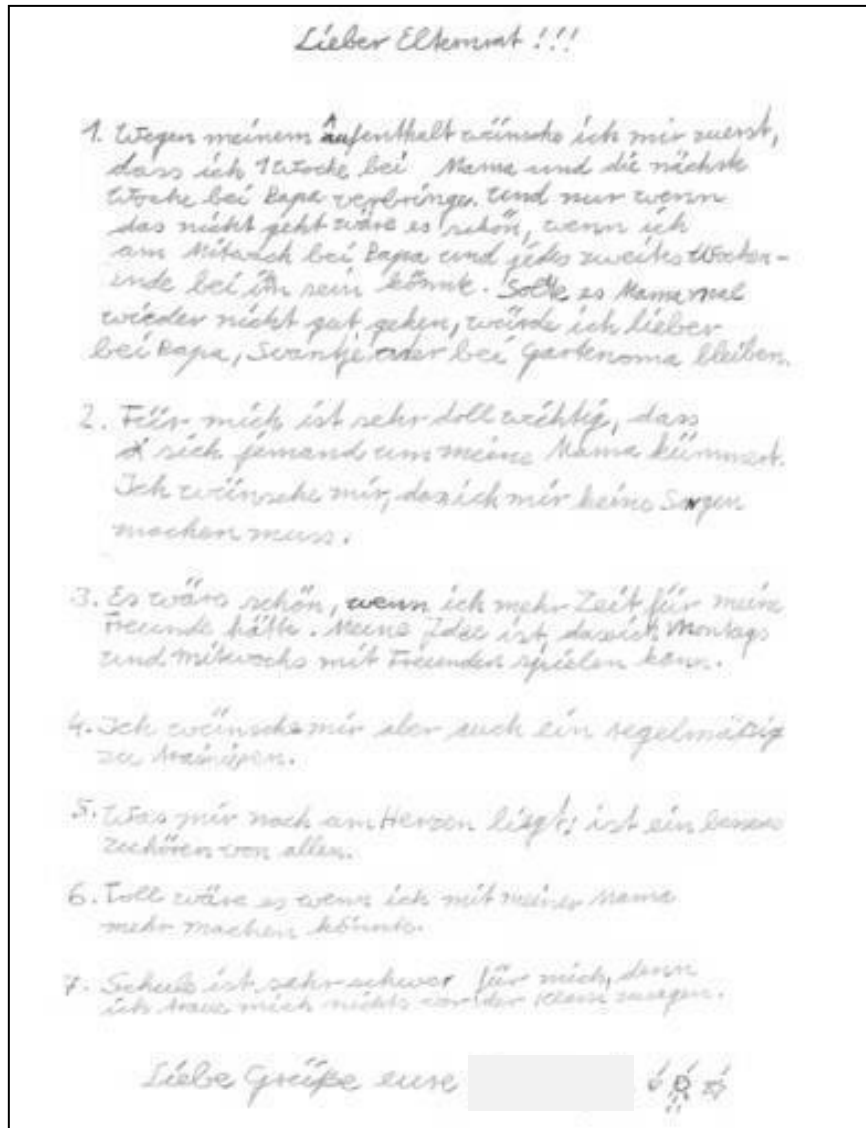 Lieber Elternrat !!!
1. Wegen meinem Aufenthalt wünsche ich mir zuerst,
dass ich 1 Woche bei Mama und die nächste
Woche bei Papa verbringe. Und nur wenn
das nicht geht wäre es schön, wenn ich
am Mitwoch bei Papa und jedes zweite Wochen-
ende bei ihm sein könnte. Sollte es Mama mal
wieder nicht gut gehen, würde ich lieber
bei Papa, Svantje oder bei Gartenoma bleiben.
2. Für mich ist sehr doll wichtig, dass
sich jemand um meine Mama kümmert.
Ich wünsche mir, dass ich mir keine Sorgen
machen muss.
3. Es wäre schön, wenn ich mehr Zeit für meine
Freunde hätte. Meine Idee ist, dass ich Montags
und Mitwochs mit Freunden spielen kann.
4. Ich wünsche mir aber auch ein regelmäßig
zu
5. Was mir noch am Herzen liegt, ist ein besseres
zuhören von allen.
6. Toll wäre es wenn ich mit meiner Mama
mehr machen könnte.
7. Schule ist sehr schwer für mich, denn
ich traue mich nichts vor der Klasse zu sagen.
Liebe Grüße eure